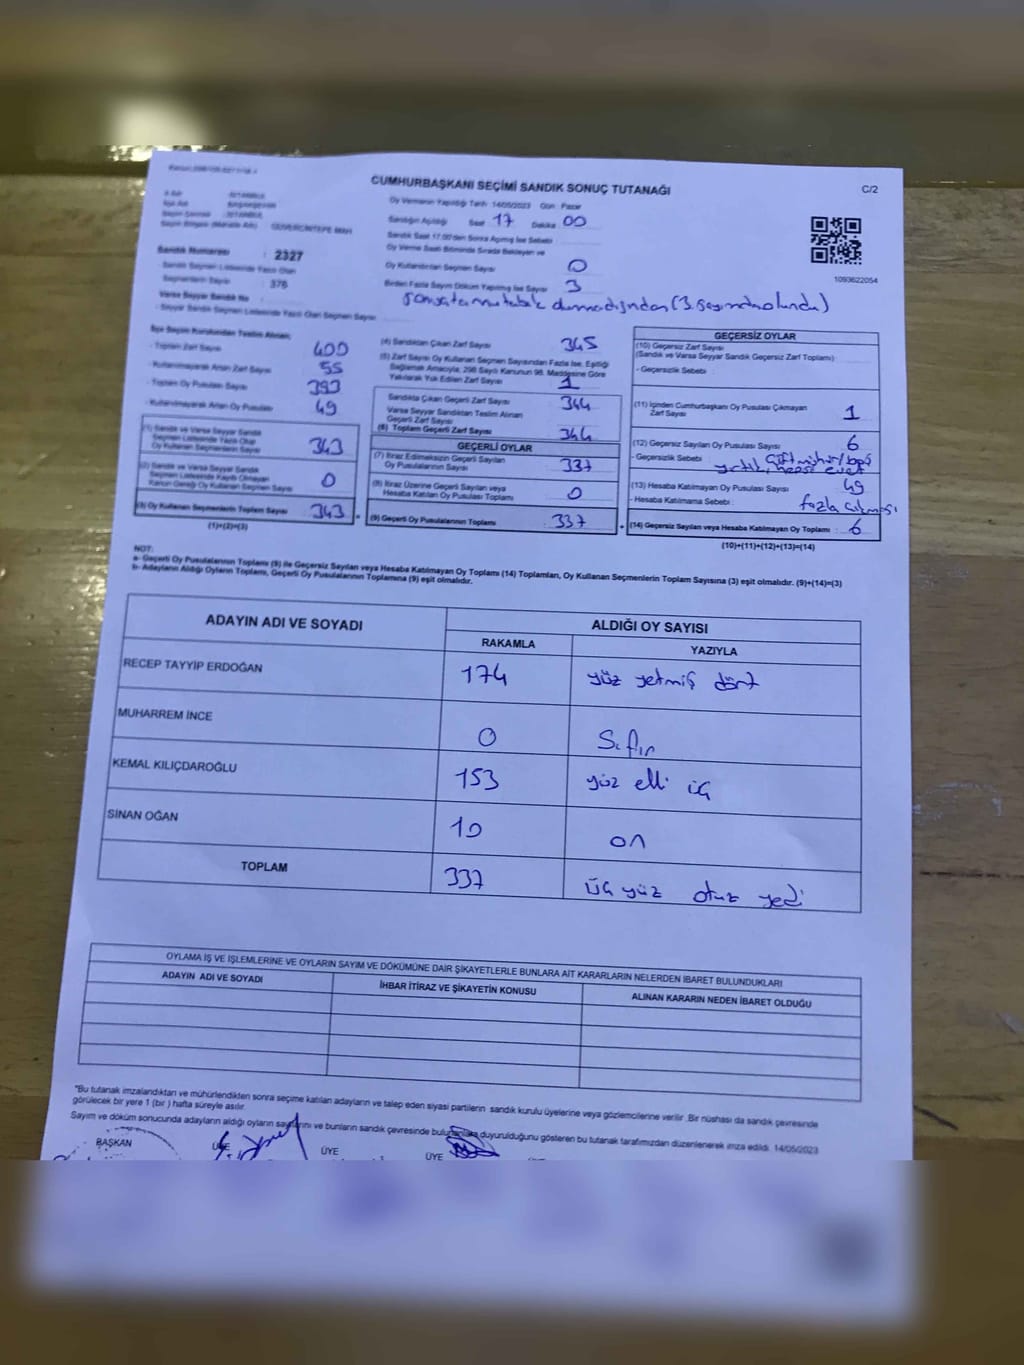 CUMHURBAŞKANI SEÇİMİ SANDIK SONUÇ TUTANAĞI
C/2
Oy Vermenin Yapıldığı Tarih 14/05/2023 Gün Pazar
Sandığın Açıldığı Saat 17 Dakika 00
Sandık Saat 17.00'den Sonra Açılmış İse Sebebi :
Oy Verme Saati Bitiminde Sırada Bekleyen ve
Oy Kullandırılan Seçmen Sayısı 0
Birden Fazla Sayım Döküm Yapılmış İse Sayısı 3
1093622054
GÜVERCİNTEPE MAH
Sandık Numarası : 2327
Sandık Seçmen Listesinde Yazılı Olan
Seçmenlerin Sayısı : 376
Varsa Seyyar Sandık No :
Seyyar Sandık Seçmen Listesinde Yazılı Olan Seçmen Sayısı :
İlçe Seçim Kurulundan Teslim Alınan;
- Toplam Zarf Sayısı 400
- Kullanılmayarak Artan Zarf Sayısı 55
- Toplam Oy Pusulası Sayısı 393
- Kullanılmayarak Artan Oy Pusulası 49
(1) Sandık ve Varsa Seyyar Sandık
Seçmen Listesinde Yazılı Olup
Oy Kullanan Seçmenlerin Sayısı 343
(2) Sandık ve Varsa Seyyar Sandık
Seçmen Listesinde Kaydı Olmayan
Kanun Gereği Oy Kullanan Seçmen Sayısı 0
(3) Oy Kullanan Seçmenlerin Toplam Sayısı 343
(1)+(2)=(3)
(4) Sandıktan Çıkan Zarf Sayısı 345
(5) Zarf Sayısı Oy Kullanan Seçmen Sayısından Fazla İse, Eşitliği
Sağlamak Amacıyla, 298 Sayılı Kanunun 98. Maddesine Göre
Yakılarak Yok Edilen Zarf Sayısı 1
Sandıkta Çıkan Geçerli Zarf Sayısı 344
Varsa Seyyar Sandıktan Teslim Alınan
Geçerli Zarf Sayısı
(6) Toplam Geçerli Zarf Sayısı 344
GEÇERLİ OYLAR
(7) İtiraz Edilmeksizin Geçerli Sayılan
Oy Pusulalarının Sayısı 337
(8) İtiraz Üzerine Geçerli Sayılan veya
Hesaba Katılan Oy Pusulası Toplamı 0
(9) Geçerli Oy Pusulalarının Toplamı 337
GEÇERSİZ OYLAR
(10) Geçersiz Zarf Sayısı
(Sandık ve Varsa Seyyar Sandık Geçersiz Zarf Toplamı) :
- Geçersizlik Sebebi :
(11) İçinden Cumhurbaşkanı Oy Pusulası Çıkmayan
Zarf Sayısı 1
(12) Geçersiz Sayılan Oy Pusulası Sayısı 6
- Geçersizlik Sebebi : çift mühür/boş
yırtık, hepsi evet
(13) Hesaba Katılmayan Oy Pusulası Sayısı 49
- Hesaba Katılmama Sebebi : fazla çıkması
(14) Geçersiz Sayılan veya Hesaba Katılmayan Oy Toplamı : 6
(10)+(11)+(12)+(13)=(14)
NOT:
a- Geçerli Oy Pusulalarının Toplamı (9) ile Geçersiz Sayılan veya Hesaba Katılmayan Oy Toplamı (14) Toplamları, Oy Kullanan Seçmenlerin Toplam Sayısına (3) eşit olmalıdır. (9)+(14)=(3)
b- Adayların Aldığı Oyların Toplamı, Geçerli Oy Pusulalarının Toplamına (9) eşit olmalıdır.
ADAYIN ADI VE SOYADI ALDIĞI OY SAYISI
RAKAMLA YAZIYLA
RECEP TAYYİP ERDOĞAN 174 yüz yetmiş dört
MUHARREM İNCE 0 Sıfır
KEMAL KILIÇDAROĞLU 153 yüz elli üç
SİNAN OĞAN 10 on
TOPLAM 337 üç yüz otuz yedi
OYLAMA İŞ VE İŞLEMLERİNE VE OYLARIN SAYIM VE DÖKÜMÜNE DAİR ŞİKAYETLERLE BUNLARA AİT KARARLARIN NELERDEN İBARET BULUNDUKLARI
ADAYIN ADI VE SOYADI İHBAR İTİRAZ VE ŞİKAYETİN KONUSU ALINAN KARARIN NEDEN İBARET OLDUĞU
"Bu tutanak imzalandıktan ve mühürlendikten sonra seçime katılan adayların ve talep eden siyasi partilerin sandık kurulu üyelerine veya gözlemcilerine verilir. Bir nüshası da sandık çevresinde
görülecek bir yere 1 (bir ) hafta süreyle asılır.
Sayım ve döküm sonucunda adayların aldığı oyların sayılarını ve bunların sandık çevresinde bulunanlara duyurulduğunu gösteren bu tutanak tarafımızdan düzenlenerek imza edildi. 14/05/2023
BAŞKAN ÜYE ÜYE ÜYE